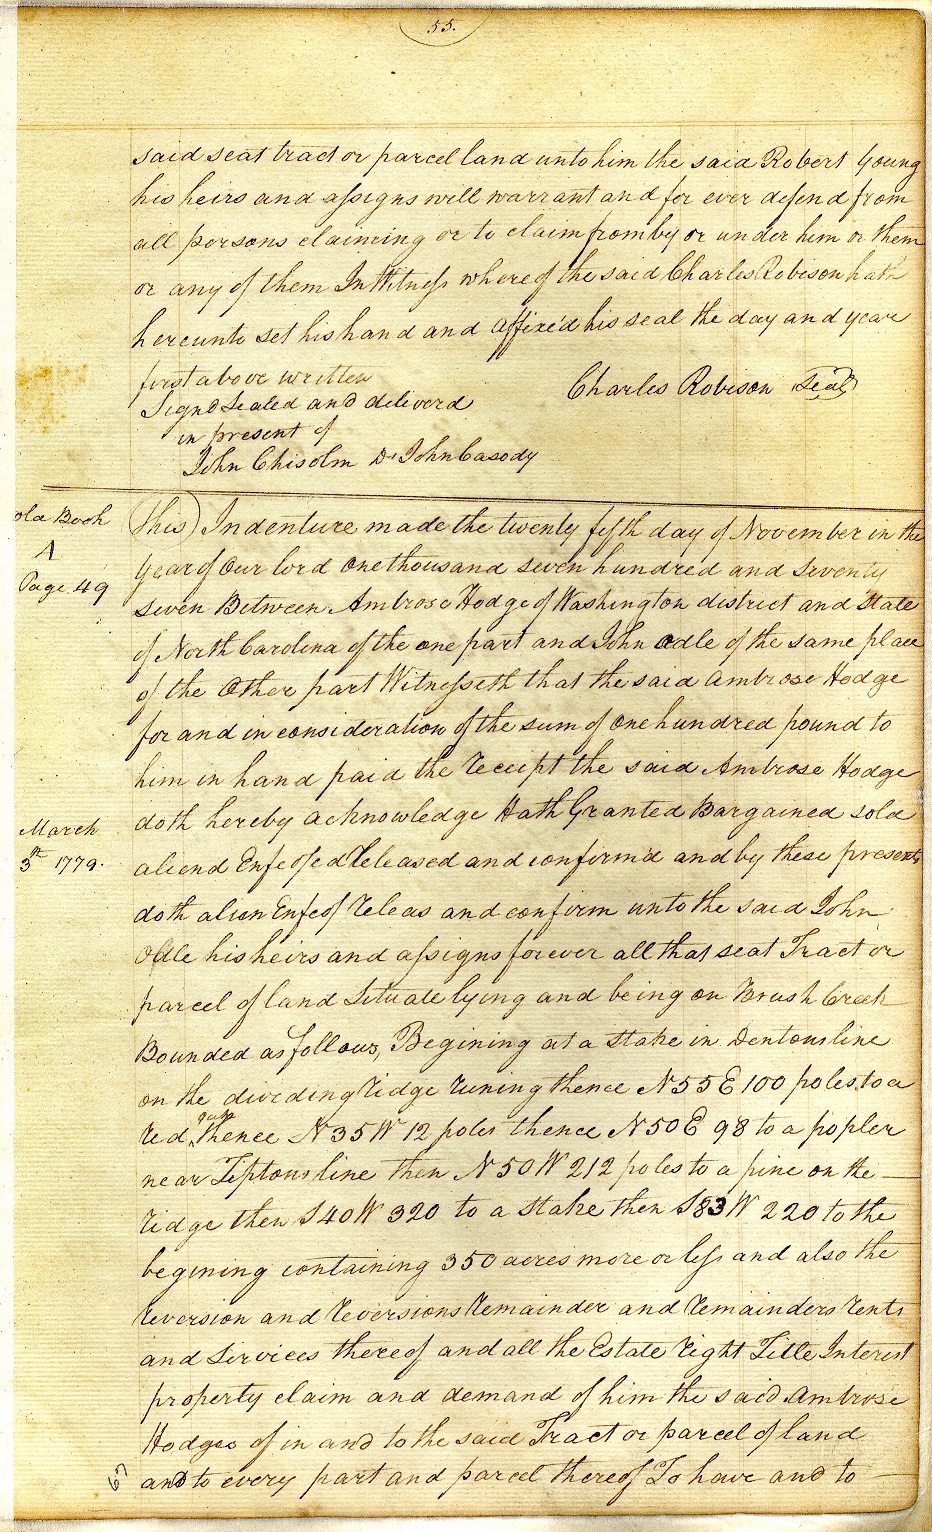 55.
said seat tract or parcel land unto him the said Robert Young
his heirs and assigns will warrant and for ever defend from
all persons claiming or to claim from by or under him or them
or any of them In Witness whereof the said Charles Robison hath
hereunto set his hand and affixe'd his seal the day and year
first above written
Charles Robison Seal
Signd Sealed and deliverd
in present of
John Chisolm Dr John Casody
old Book
A
Page 49
This Indenture made the twenty fifth day of November in the
year of Our lord One thousand seven hundred and Seventy
seven Between Ambrose Hodge of Washington district and State
of North Carolina of the one part and John odle of the same place
of the Other part Witnesseth that the said Ambrose Hodge
for and in consideration of the sum of One hundred pound to
him in hand paid the receipt the said Ambrose Hodge
doth hereby acknowledge Hath Granted Bargained sold
March
3th 1779.
aliend Enfeofed Released and confirm'd and by these presents
doth alien Enfeof Releas and confirm unto the said John
Odle his heirs and assigns forever all that seat Tract or
parcel of land Situate lying and being on Brush Creek
Bounded as follows, Begining at a Stake in Dentons line
on the dividing ridge runing thence N 55 E 100 poles to a
red oak thence N 35 W 12 poles thence N 50 E 98 to a popler
near Tiptons line then N 50 W 212 poles to a pine on the
ridge then S 40 W 320 to a Stake then S 83 W 220 to the
begining containing 350 acres more or less and also the
reversion and reversions remainder and remainders rents
and Services thereof and all the Estate right Title Interest
property claim and demand of him the said Ambrose
Hodges of in and to the said Tract or parcel of land
and to every part and parcel thereof To have and to